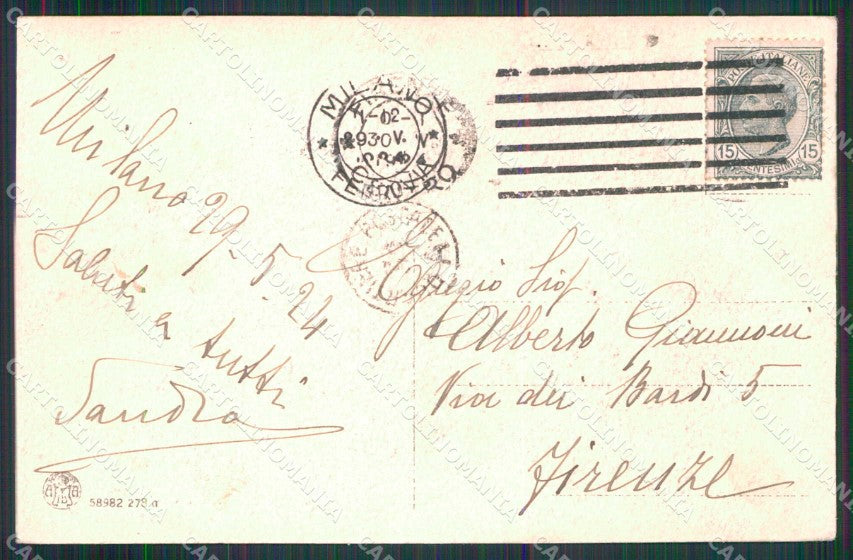 Milano 29-5-24
Saluti a
tutti
Sandra
58982 278.a
MILANO
FERROVIA
15 CENTESIMI 15
Egregio Sig.
Alberto Giannoni
Via dei Bardi 5
Firenze
CARTOLINOMANIA